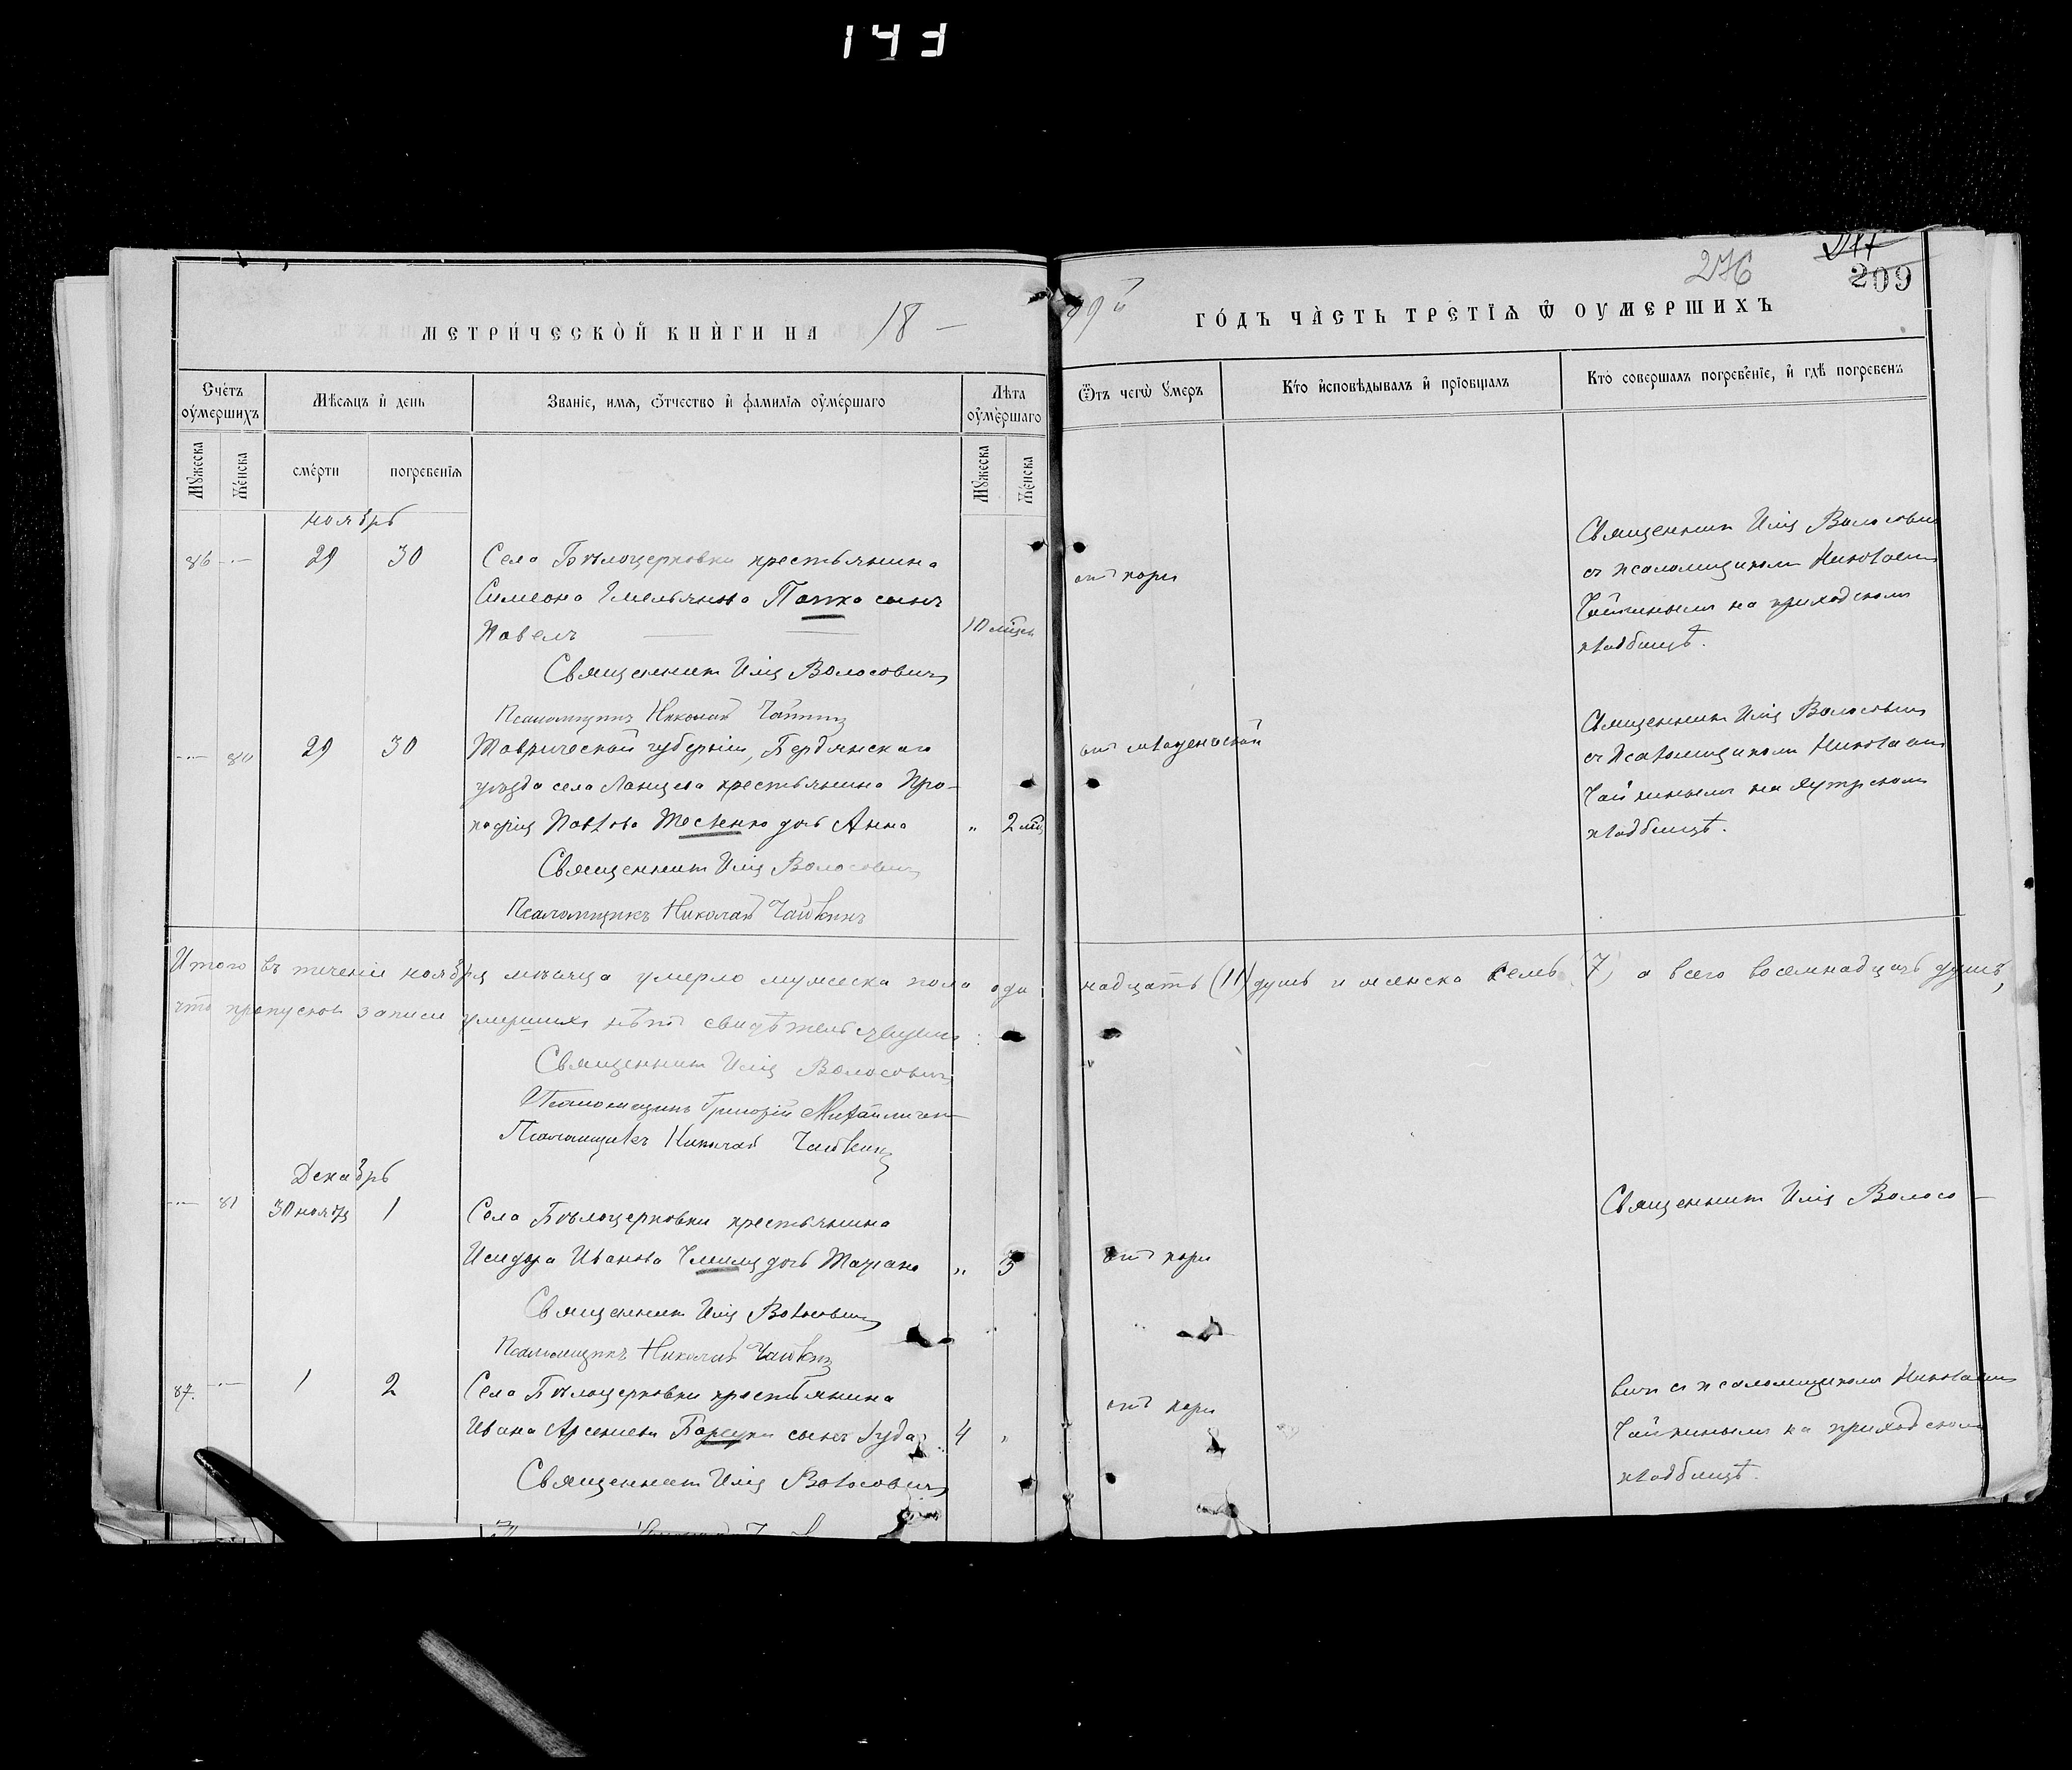 143
276
209
МЕТРИ́ЧЕСКОЙ КНИ́ГИ НА 18 —
99й ГО́ДЪ ЧА́СТЬ ТРЕ́ТІѦ Ѿ ОУМЕРШИХЪ
Счетъ оумершихъ
Мѣсяцъ и день
Званіе, имя, отчество и фамилія оумершаго
Лѣта оумершаго
Мужеска
Женска
смерти
погребенія
Мужеска
Женска
Отъ чегѡ умеръ
Кто исповѣдывалъ и пріобщалъ
Кто совершалъ погребеніе, и гдѣ погребенъ
Ноябрь
86 — 29 30 Села Бѣлоцерковки крестьянина
Симеона Емельянова Папка сынъ
Павелъ 10 мѣсц
Священникъ Илія Волосовичъ
Псаломщикъ Николай Чайкинъ
отъ кори
Священникъ Илія Волосович
съ псаломщикомъ Николаемъ
Чайкинымъ на приходскомъ
кладбищѣ.
— 80 29 30 Таврической губерніи, Бердянскаго
уѣзда села Ланцева крестьянина Про-
кофія Павлова Тесленко дочь Анна „ 2 мѣц
Священникъ Илія Волосовичъ
Псаломщикъ Николай Чайкинъ
отъ младенческой
Священникъ Илія Волосовичъ
съ Псаломщикомъ Николаемъ
Чайкинымъ на хуторскомъ
кладбищѣ.
Итого въ теченіи ноября мѣсяца умерло мужеска пола оди
надцать (11) душъ и женска семь (7) а всего восемнадцать душъ,
что пропусковъ записи умершихъ нѣтъ свидѣтельствуемъ:
Священникъ Илія Волосовичъ
Псаломщикъ Григорій Михайличенко
Псаломщикъ Николай Чайкинъ
Декабрь
— 81 30 ноября 1 Села Бѣлоцерковки крестьянина
Исидора Иванова Чмиля дочь Татіана „ 3
Священникъ Илія Волосовичъ
Псаломщикъ Николай Чайкинъ
отъ кори
Священникъ Илія Волосо-
87. — 1 2 Села Бѣлоцерковки крестьянина
Ивана Арсеніева Барсука сынъ Іуда 4 „
Священникъ Илія Волосовичъ
отъ кори
вичъ съ псаломщикомъ Николаемъ
Чайкинымъ на приходскомъ
кладбищѣ.